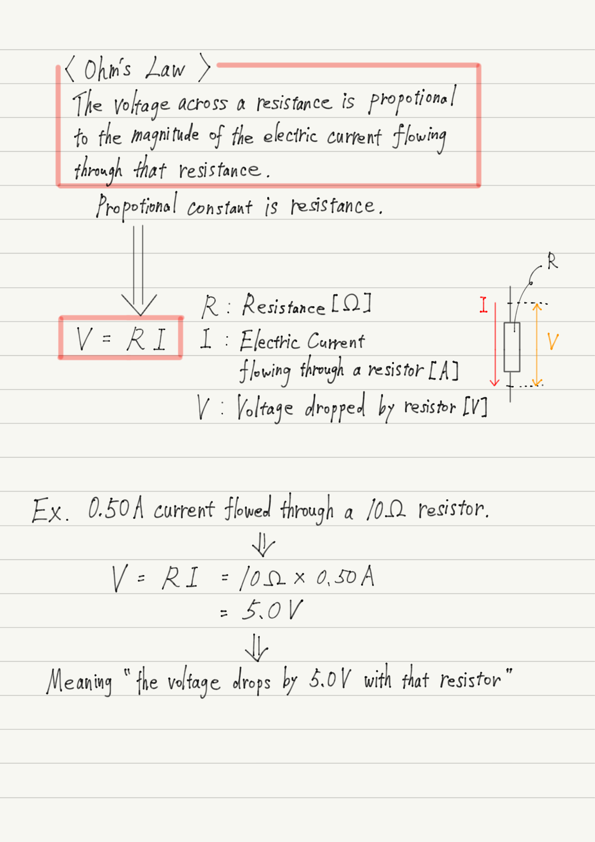 〈 Ohm's Law 〉
The voltage across a resistance is propotional
to the magnitude of the electric current flowing
through that resistance.
Propotional constant is resistance.
R
R : Resistance [Ω]
I
V = R I
I : Electric Current
V
flowing through a resistor [A]
V : Voltage dropped by resistor [V]
Ex. 0.50A current flowed through a 10Ω resistor.
⇓
V = R I = 10Ω × 0.50A
= 5.0V
⇓
Meaning "the voltage drops by 5.0V with that resistor"